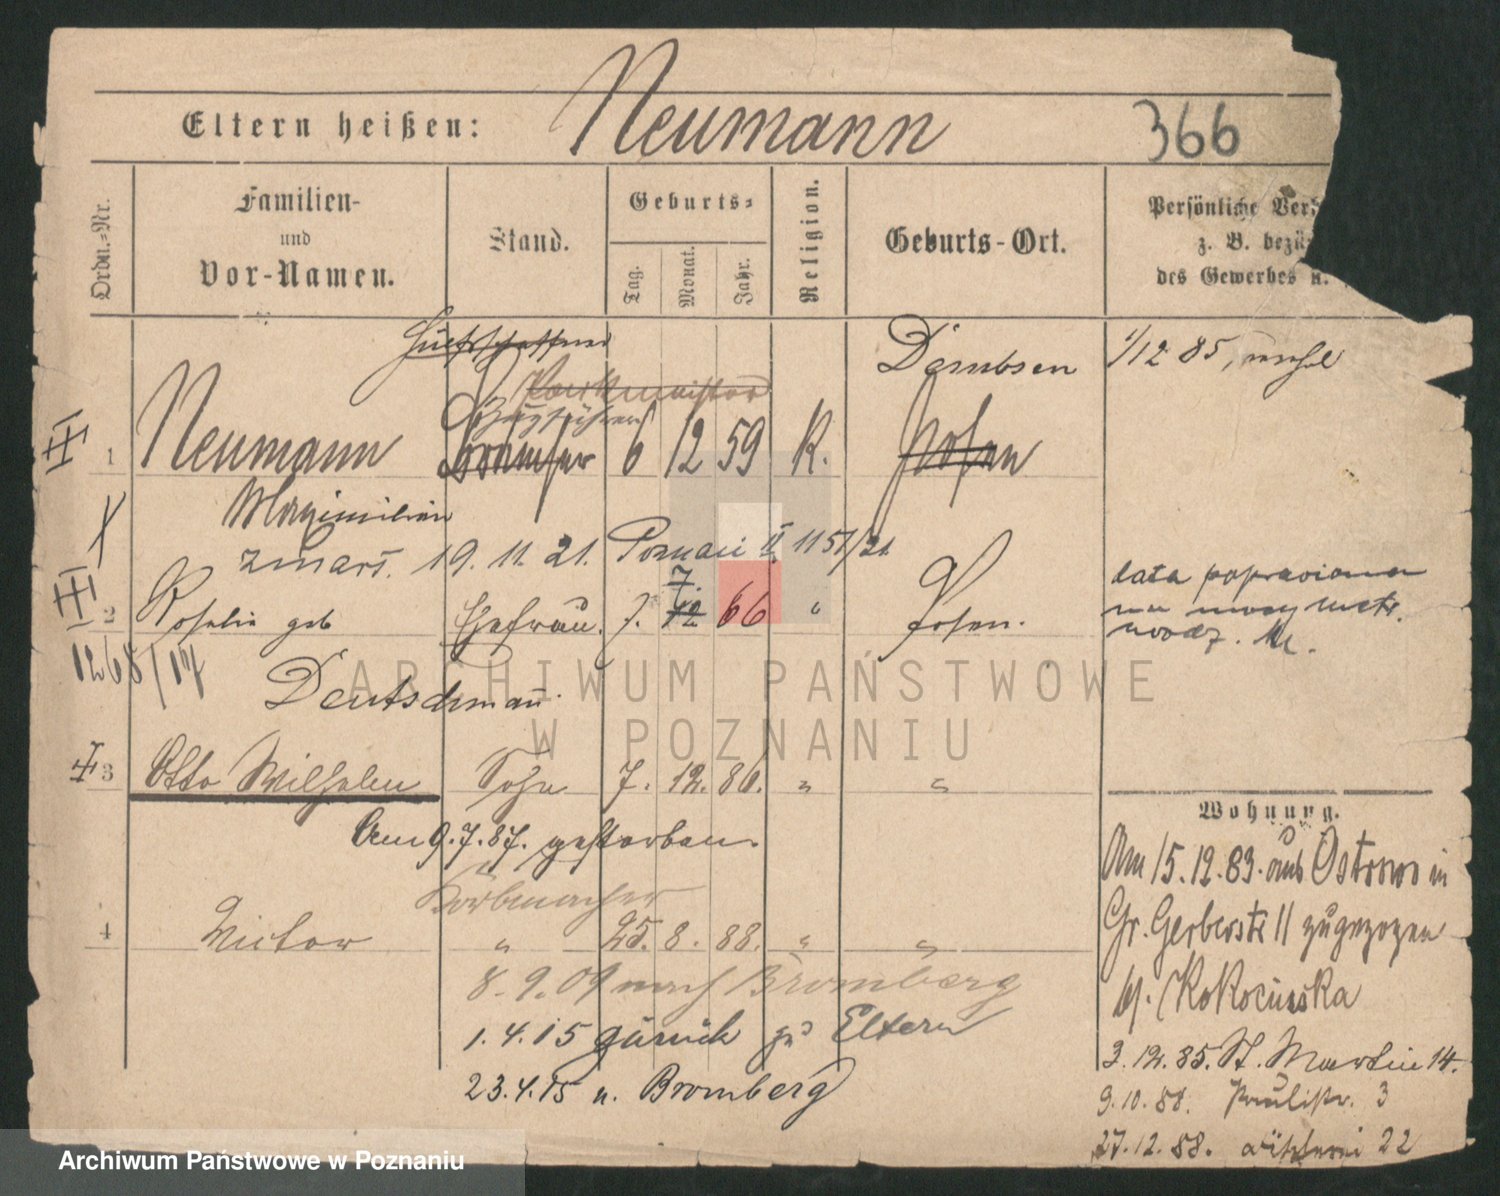 Eltern heißen: Neumann 366
Ordn.-Nr.
Familien-
und
Vor-Namen.
Stand.
Geburts-
Tag. Monat. Jahr.
Religion.
Geburts-Ort.
Persönliche Ver
z. B. bezü
des Gewerbes u.
Dembsen 1/12 85,
III 1 Neumann 6 12 59 K. Posen
Maximilian
zmarł. 19. 11. 21. Poznań II 1151/21
III 2 Rosalie geb Ehefrau. 7. 12 7 66 " Posen.
data poprawiona
1268/17
Deutschmann.
3 Otto Wilhelm Sohn 7. 12. 86. " "
Am 9.7.87. gestorben.
Korbmacher
4 Victor " 25. 8. 88. " "
8.9.09 nach Bromberg
1.4.15 zurück zu Eltern
23.4.15 n. Bromberg
Wohnung.
Am 15.12.83. aus Ostrowo in
Gr. Gerberstr 11 zugezogen
3.12.85. St. Martin 14.
9.10.88. Paulistr. 3
27.12.88. 22
ARCHIWUM PAŃSTWOWE
W POZNANIU
Archiwum Państwowe w Poznaniu